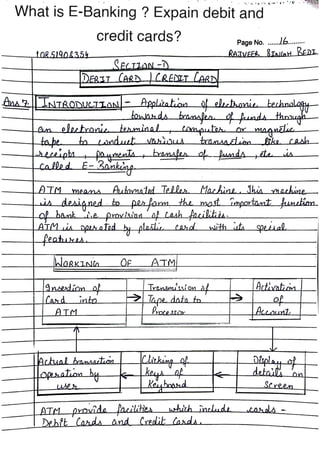 What is E-Banking ? Expain debit and
credit cards?
Page No. 16
10851908354
RAJVEER SINGH BEDI
SECTION-D
DEBIT CARD | CREDIT CARD
Ans.7. INTRODUCTION - Application of electronic technology
towards transfer of funds through
an electronic terminal, computer or magnetic
tape to conduct various transaction like cash
receipts, payments, transfer of funds, etc. is
called E-Banking.
ATM means Automated Teller Machine. This machine
is designed to perform the most important function
of bank i.e provision of cash facilities.
ATM is operated by plastic card with its special
features.
WORKING OF ATM
Insertion of
Card into
ATM
Transmission of
Tape data to
Processor
Activation
of
Account
Actual transaction
operation by
user
Clicking of
keys of
Keyboard
Display of
details on
Screen
ATM provide facilities which include cards -
Debit Cards and Credit Cards.